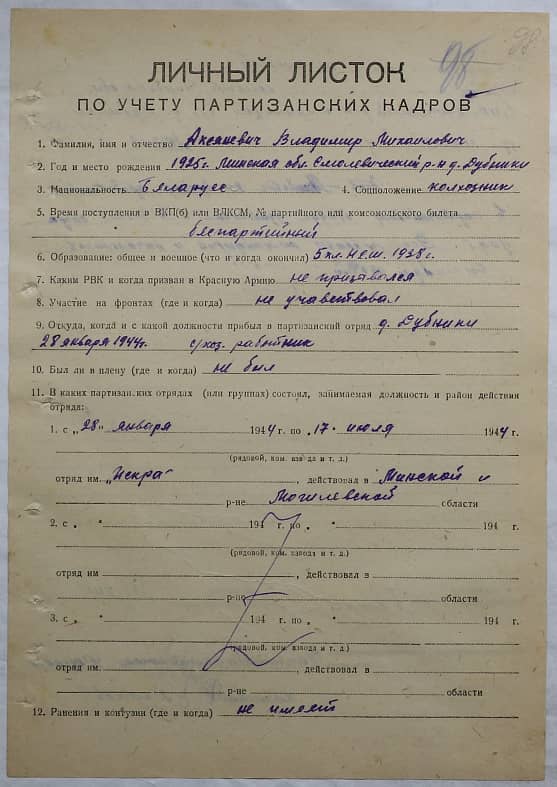 98
98
ЛИЧНЫЙ ЛИСТОК
ПО УЧЕТУ ПАРТИЗАНСКИХ КАДРОВ
1. Фамилия, имя и отчество Аксяневич Владимир Михайлович
2. Год и место рождения 1925г. Минская обл. Смолевический р-н д. Дубники
3. Национальность Беларусс 4. Соцположение колхозник
5. Время поступления в ВКП(б) или ВЛКСМ, № партийного или комсомольского билета
беспартийный
6. Образование: общее и военное (что и когда окончил) 5 кл. Н.С.Ш. 1938 г.
7. Каким РВК и когда призван в Красную Армию не призывался
8. Участие на фронтах (где и когда) не учавствовал
9. Откуда, когда и с какой должности прибыл в партизанский отряд д. Дубники
28 января 1944г. с/хоз. работник
10. Был ли в плену (где и когда) не был
11. В каких партизанских отрядах (или группах) состоял, занимаемая должность и район действия
отряда:
1. с „28" января 1944 г. по „17" июля 1944 г.
(рядовой, ком. взвода и т. д.)
отряд им. "Искра", действовал в Минской и
р-не Могилевской области
2. с „ " 194 г. по „ " 194 г.
(рядовой, ком. взвода и т. д.)
отряд им , действовал в
р-не области
3. с „ " 194 г. по „ " 194 г.
(рядовой, ком. взвода и т. д.)
отряд им. , действовал в
р-не области
12. Ранения и контузии (где и когда) не имеет